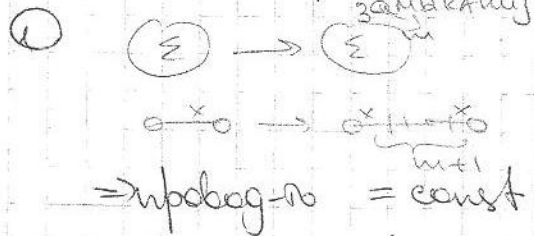 замыканиз
① Σ → Σ m
x → x x
m+1
⇒ провод-ть = const